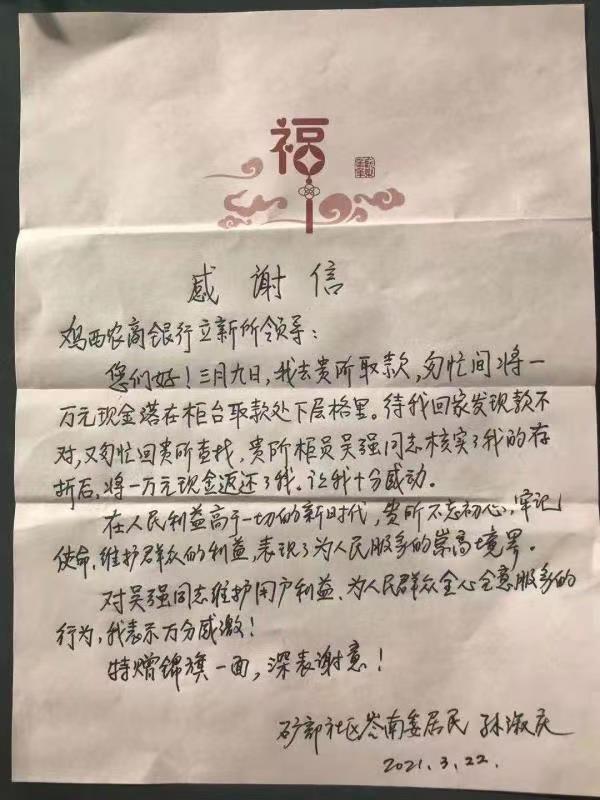 福
感谢信
鸡西农商银行立新所领导：
您们好！三月九日，我去贵所取款，匆忙间将一
万元现金落在柜台取款处下层格里。待我回家发现款不
对，又匆忙回贵所查找，贵所柜员吴强同志核实了我的存
折后，将一万元现金返还了我。让我十分感动。
在人民利益高于一切的新时代，贵所不忘初心，牢记
使命，维护群众的利益，表现了为人民服务的崇高境界。
对吴强同志维护用户利益、为人民群众全心全意服务的
行为，我表示万分感激！
特赠锦旗一面，深表谢意！
矿部社区岭南委居民 孙淑庆
2021.3.22.